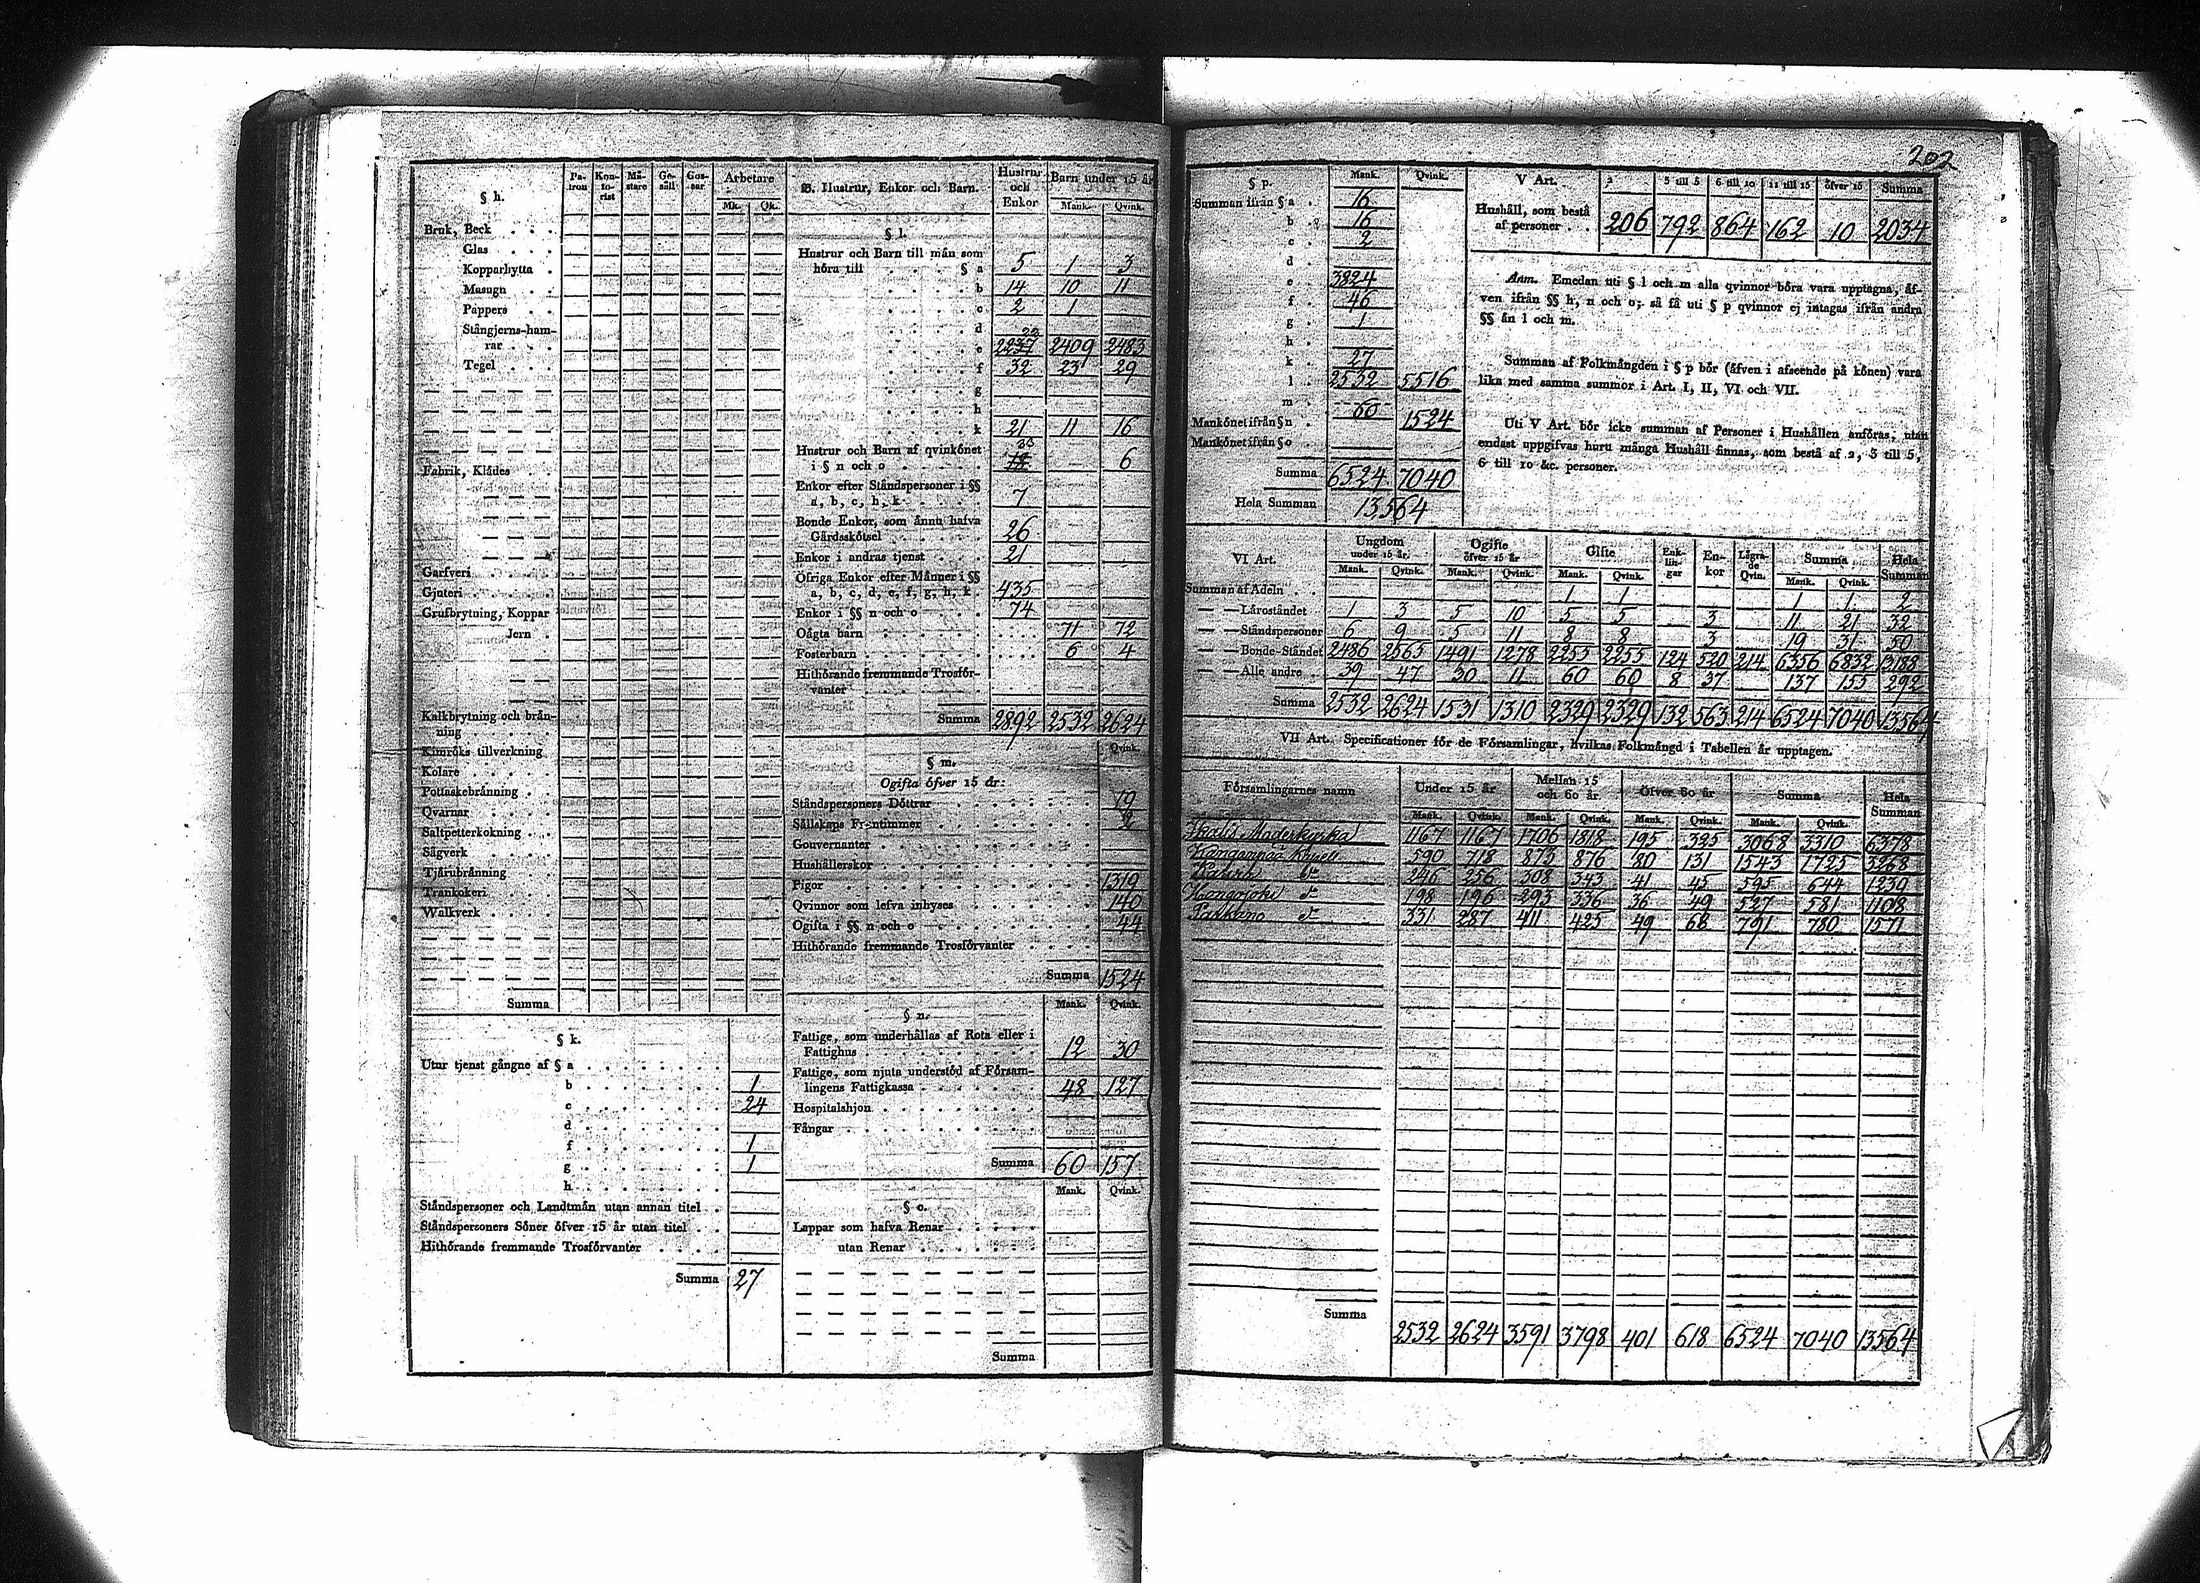 § h.
Pa-tron Kon-to-rist Mä-stare Ge-säll Gos-sar Arbetare
Mk. Qk.
Bruk, Beck . . .
Glas . . .
Kopparhytta .
Masugn . .
Pappers . .
Stångjerns-ham-
rar . . .
Tegel . . .
Fabrik, Klädes . .
Garfveri . . . .
Gjuteri . . . .
Grufbrytning, Koppar
Jern .
Kalkbrytning och brän-
ning . . . .
Kimröks tillverkning
Kolare . . . . .
Pottaskebränning . .
Qvarnar . . . .
Saltpetterkokning . .
Sågverk . . . .
Tjärubränning . .
Trankokeri . . . .
Walkverk . . . .
Summa
§ k.
Utur tjenst gångne af § a . . . . . . .
b . . . . . . . 1
c . . . . . . . 24
d . . . . . . .
f . . . . . . . 1
g . . . . . . . 1
h . . . . . . .
Ståndspersoner och Landtmän utan annan titel .
Ståndspersoners Söner öfver 15 år utan titel . .
Hithörande fremmande Trosförvanter . . . .
Summa 27
B. Hustrur, Enkor och Barn.
Hustrur och Enkor Barn under 15 år
Mank. Qvink.
§ l.
Hustrur och Barn till män som
höra till . . . . § a 5 1 3
b 14 10 11
c 2 1
d
e 2237 2409 2483
f 32 23 29
g
h
k 21 11 16
Hustrur och Barn af qvinkönet
i § n och o . . . . . — 6
Enkor efter Ståndspersoner i §§
a, b, c, h, k . . . . 7
Bonde Enkor, som ännu hafva
Gårdsskötsel . . . . . 26
Enkor i andras tjenst . . . 21
Öfriga Enkor efter Männer i §§
a, b, c, d, e, f, g, h, k . 435
Enkor i §§ n och o . . . . 74
Oägta barn . . . . . . . . . . 71 72
Fosterbarn . . . . . . . . . . 6 4
Hithörande fremmande Trosför-
vanter . . . . . . .
Summa 2892 2532 2624
Qvink.
§ m.
Ogifta öfver 15 år:
Ståndspersoners Döttrar . . . . . . . 19
Sällskaps Fruntimmer . . . . . . . 2
Gouvernanter . . . . . . . . .
Hushållerskor . . . . . . . . .
Pigor . . . . . . . . . . . 1319
Qvinnor som lefva inhyses . . . . . . 140
Ogifta i §§ n och o . . . . . . . . 44
Hithörande fremmande Trosförvanter . . . .
Summa 1524
Mank. Qvink.
§ n.
Fattige, som underhållas af Rota eller i
Fattighus . . . . . . . . . 12 30
Fattige, som njuta understöd af Försam-
lingens Fattigkassa . . . . . . . 48 127
Hospitalshjon . . . . . . . . .
Fångar . . . . . . . . . . .
Summa 60 157
Mank. Qvink.
§ o.
Lappar som hafva Renar . . . . .
utan Renar . . . . . . .
Summa
202
§ p. Mank. Qvink.
Summan ifrån § a . 16
b . 16
c . 2
d .
e . 3824
f . 46
g . 1
h .
k . 27
l . 2532 5516
m . 1524
Mankönet ifrån § n . 60
Mankönet ifrån § o .
Summa 6524 7040
Hela Summan 13564
V Art. 2 3 till 5 6 till 10 11 till 15 öfver 15 Summa
Hushåll, som bestå
af personer . . 206 792 864 162 10 2034
Anm. Emedan uti § l och m alla qvinnor böra vara upptagna, äf-
ven ifrån §§ h, n och o; så få uti § p qvinnor ej intagas ifrån andra
§§ än l och m.
Summan af Folkmängden i § p bör (äfven i afseende på könen) vara
lika med samma summor i Art. I, II, VI och VII.
Uti V Art. bör icke summan af Personer i Hushållen anföras, utan
endast uppgifvas huru många Hushåll finnas, som bestå af 2, 3 till 5,
6 till 10 &c. personer.
VI Art. Ungdom under 15 år. Ogifte öfver 15 år Gifte Enk-lin-gar En-kor Lägra-de Qvin. Summa Hela Summan
Mank. Qvink. Mank. Qvink. Mank. Qvink. Mank. Qvink.
Summan af Adeln . . 1 1 1 1 2
— — Läroståndet 1 3 5 10 5 5 3 11 21 32
— — Ståndspersoner 6 9 5 11 8 8 3 19 31 50
— — Bonde-Ståndet 2486 2565 1491 1278 2255 2255 124 520 214 6356 6832 13188
— — Alle andre . 39 47 30 11 60 60 8 37 137 155 292
Summa 2532 2624 1531 1310 2329 2329 132 563 214 6524 7040 13564
VII Art. Specificationer för de Församlingar, hvilkas Folkmängd i Tabellen är upptagen.
Församlingarnes namn Under 15 år Mellan 15 och 60 år Öfver 60 år Summa Hela Summan
Mank. Qvink. Mank. Qvink. Mank. Qvink. Mank. Qvink.
Ikalis Moderkyrka 1167 1167 1706 1818 195 325 3068 3310 6378
Kanganpää Kapell 590 718 873 876 80 131 1543 1725 3268
246 256 308 343 41 45 595 644 1239
198 196 293 336 36 49 527 581 1108
Parkano d° 331 287 411 425 49 68 791 780 1571
Summa
2532 2624 3591 3798 401 618 6524 7040 13564